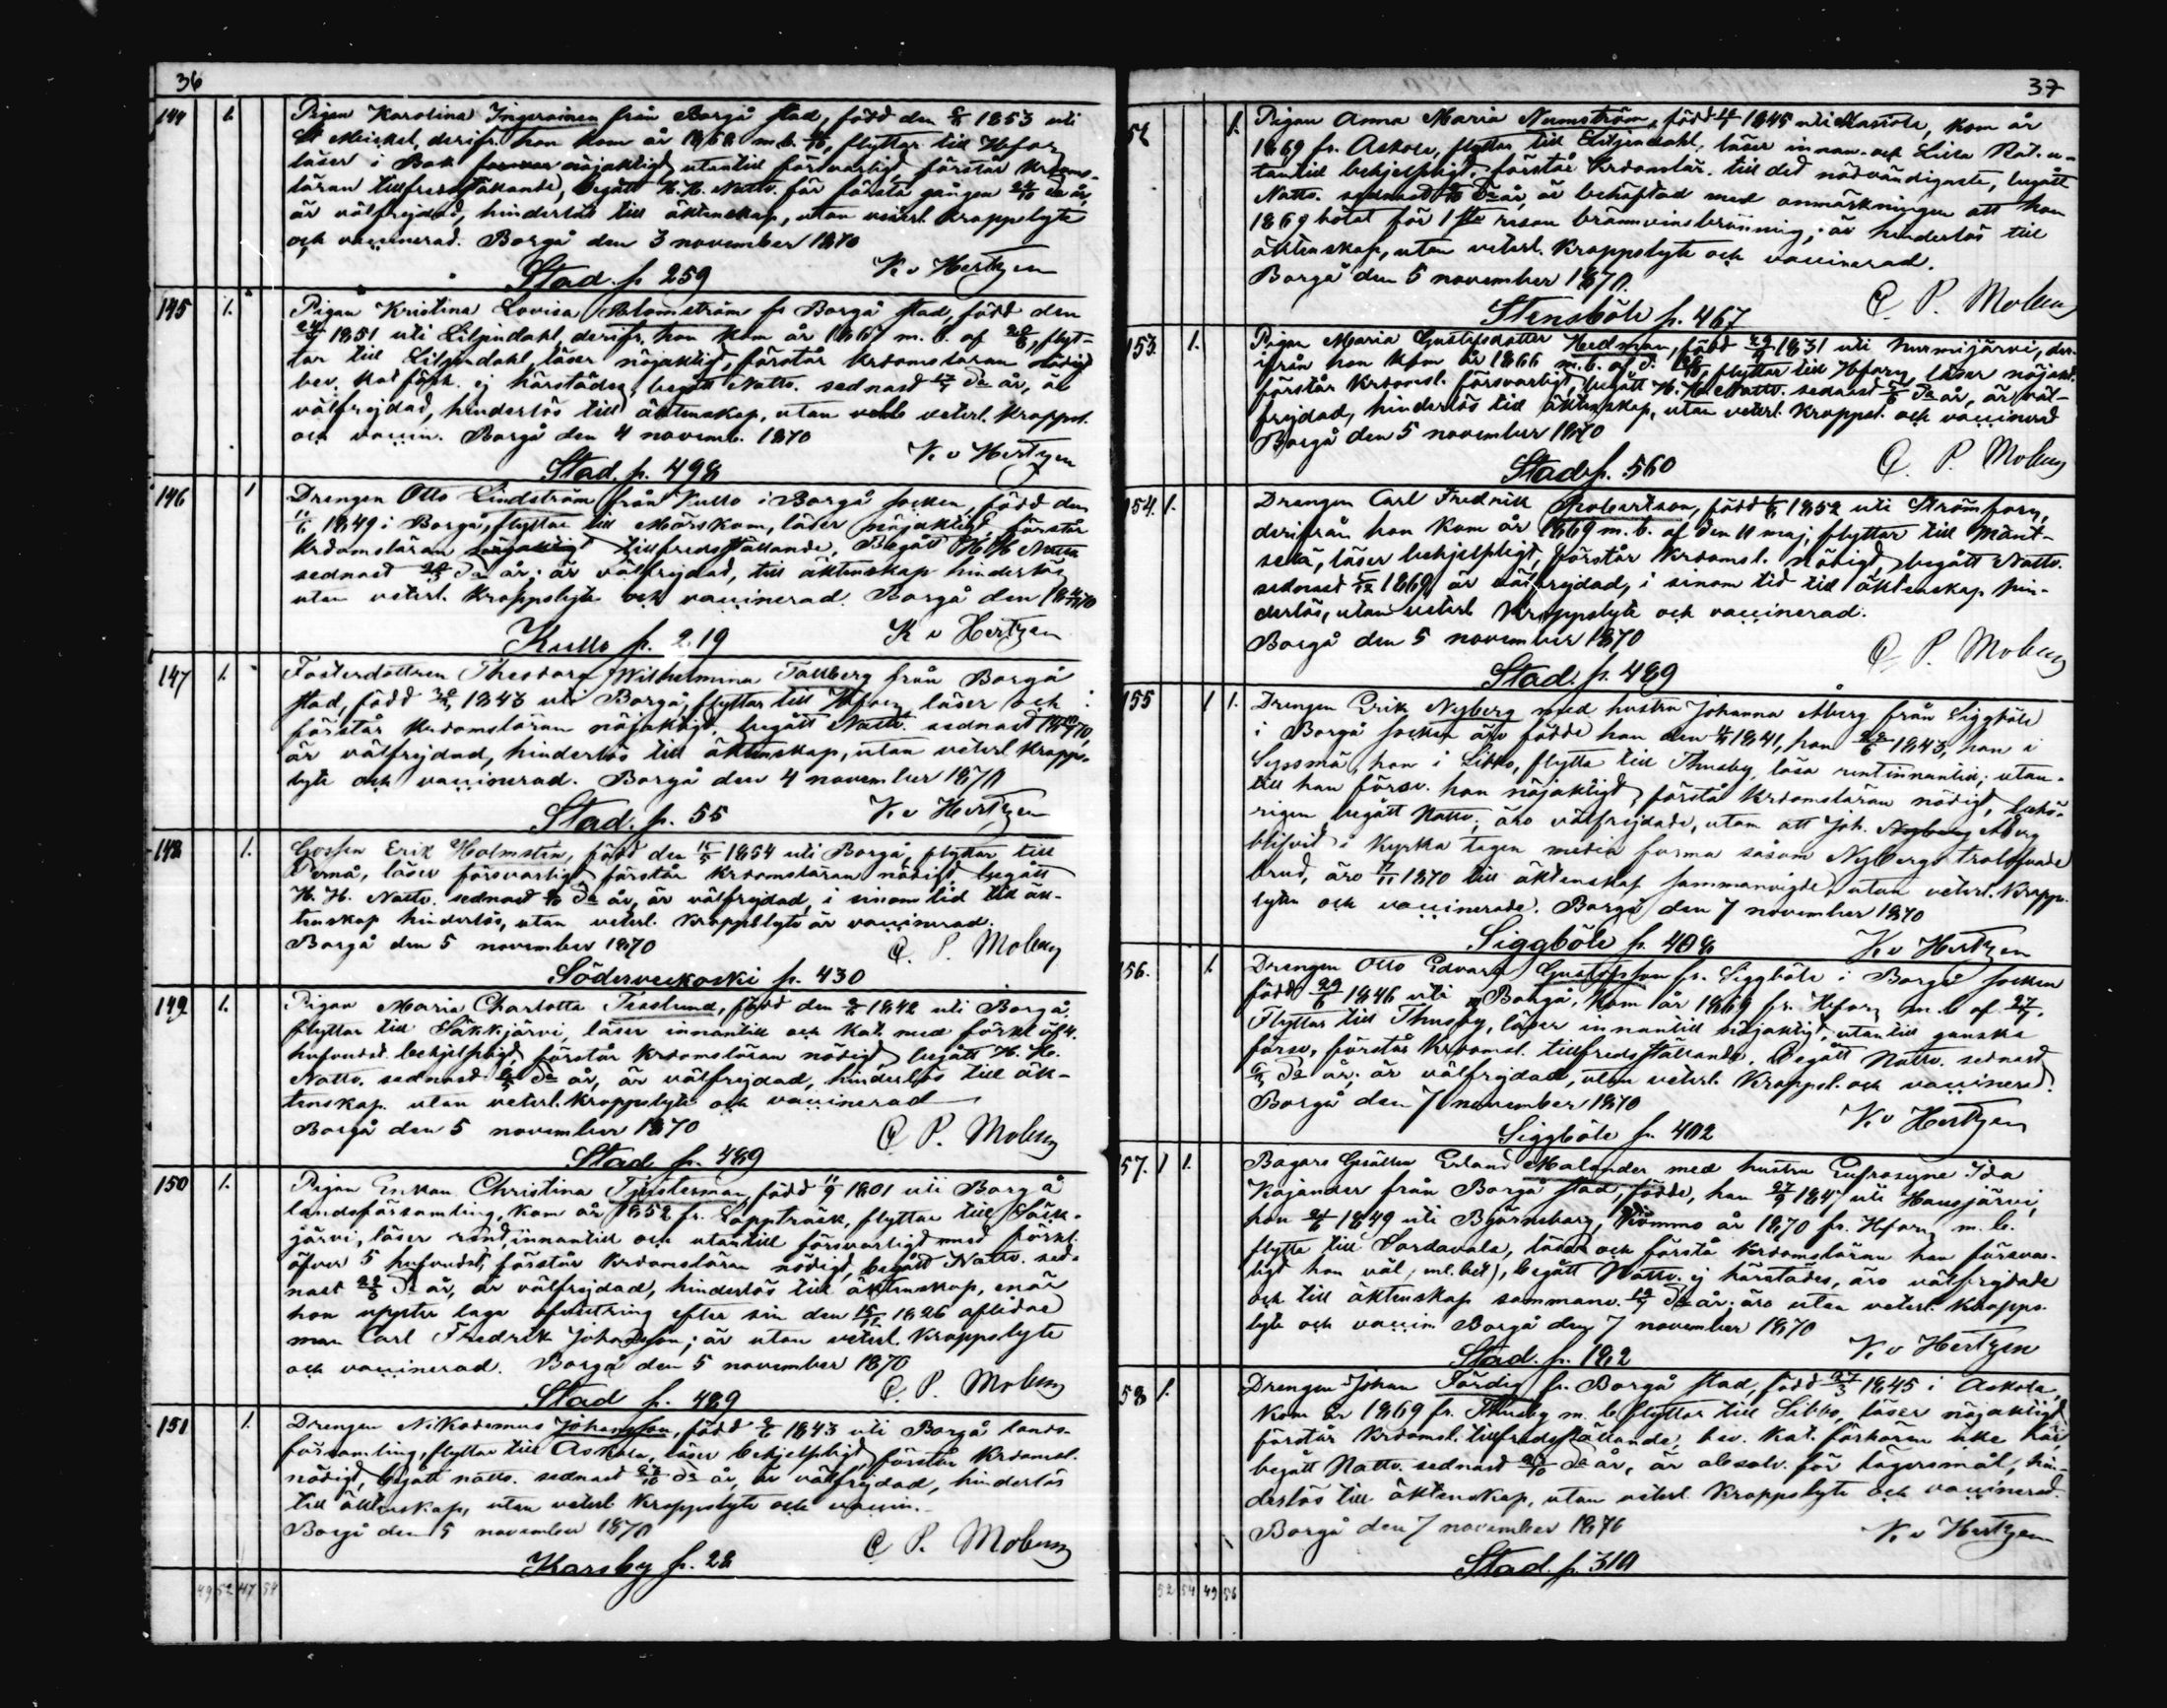 36
144 1. Pigan Karolina Ingeroinen från Borgå stad, född den 1853 uti
St Michel, derifr. hon kom år 1868 m. b. flyttar till Hfors,
läser i Bok nöjaktigt utantill försvarligt, förstår Krdoms-
läran tillfredsställande, begått H. H. Nattv. för första gången 24/10 då år,
är välfrejdad, hinderlös till äktenskap, utan veterl. kroppslyte
och vaccinerad. Borgå den 3 november 1870
Stad. p. 259 K. v Hertzen
145 1. Pigan Kristina Lovisa Blomström fr Borgå stad, född den
1851 uti Liljendahl, derifr. hon kom år 1867 m. b. af flyt-
tar till Liljendahl, läser nöjaktigt, förstår Krdomsläran nödigt
bev. Kat förh. ej härstädes, begått Nattv. sednast då år, är
välfrejdad, hinderlös till äktenskap, utan veterl. kroppsl.
och vaccin. Borgå den 4 novemb. 1870
Stad. p. 498 K. v Hertzen
146 1 Drengen Otto Lindström från Kullo i Borgå socken, född den
11/6 1849 i Borgå, flyttar till Mörskom, läser nöjaktigt förstår
Krdomsläran tillfredsställande. Begått H. H. Nattv.
sednast då år; är välfrejdad, till äktenskap hinderlös
utan veterl. kroppslyte och vaccinerad. Borgå den
Kullo p. 219 K v Hertzen
147 1. Fosterdottren Theodora Wilhelmina Tallberg från Borgå
stad, född 1843 uti Borgå, flyttar till Hfors, läser och
förstår Krdomsläran nöjaktigt, begått Nattv. sednast
är välfrejdad, hinderlös till äktenskap, utan veterl kropps-
lyte och vaccinerad. Borgå den 4 november 1870
Stad. p. 55 K. v Hertzen
148 1. Gossen Erik Holmstén, född den 1854 uti Borgå, flyttar till
Pernå, läser försvarligt förstår Krdomsläran nödigt begått
H. H. Nattv. sednast då år, är välfrejdad, i sinom tid till äk-
tenskap hinderlös, utan veterl. kroppslyte är vaccinerad.
Borgå den 5 november 1870 C. P. Moberg
Söderveckoski p. 430
149 1. Pigan Maria Charlotta Tisslund, född den 1842 uti Borgå,
flyttar till Säkkjärvi, läser innantill och Kat. med förkl. öf. 4.
hufvudst. behjelpligt, förstår Krdomsläran nödigt begått H. H.
Nattv. sednast då år, är välfrejdad, hinderlös till äk-
tenskap. utan veterl. kroppslyte och vaccinerad
Borgå den 5 november 1870 C P. Moberg
Stad p. 489
150 1. Pigan Enkan Christina Tjusterman, född 11/9 1801 uti Borgå
landsförsamling, kom år 1852 fr. Lappträsk, flyttar till Säk-
järvi, läser innantill och utantill försvarligt med förkl.
öfver 5 hufvudst, förstår Krdomsläran nödigt, begått Nattv. sed-
nast då år, är välfrejdad, hinderlös till äktenskap, enär
hon efter sin den 1826 aflidne
man Carl Fredrik Johansson; är utan veterl kroppslyte
och vaccinerad. Borgå den 5 november 1870
Stad p. 489 C. P. Moberg
151 1. Drengen Nikodemus Johansson, född 1843 uti Borgå lands-
församling, flyttar till Askola, läser behjelpligt, förstår Krdomsl.
nödigt, begått nattv. sednast då år, är välfrejdad, hinderlös
till äktenskap, utan veterl kroppslyte och vaccin.
Borgå den 5 november 1870 C P. Moberg
Karsby p. 22
49 52 47 54
37
52 1. Pigan Anna Maria Numström, född 1845 uti kom år
1869 fr. Askola, flyttar till Liljendahl, läser innan. och Lilla Kat. u-
tantill behjelpligt, förstår Krdomslär. till det nödvändigaste, begått
Nattv. sednast då år, är behäftad med anmärkningen att hon
1869 bötat för 1sta resan brännvinsbränning; är hinderlös till
äktenskap, utan veterl. kroppslyte och vaccinerad.
Borgå den 5 november 1870.
Stensböle p. 467 C P. Moberg
153. 1. Pigan Maria Gustafsdotter Hedman, född 1831 uti Nurmijärvi, der-
ifrån hon kom år 1866 m. b. af d. flyttar till Hfors, läser nöjakt.
förstår Krdomsl. försvarligt, begått H. H. Nattv. sednast då år, är väl-
frejdad, hinderlös till äktenskap, utan veterl. kroppsl. och vaccinerad
Borgå den 5 november 1870
Stad p. 560 C. P. Moberg
154. 1. Drengen Carl Fredrik Robertson, född 1852 uti Strömfors,
derifrån han kom år 1869 m. b. af den 11 maj, flyttar till Mänt-
selä, läser behjelpligt, förstår Krdomsl. nödigt, begått Nattv.
sednast 1869 är välfrejdad, i sinom tid till äktenskap hin-
derlös, utan veterl kroppslyte och vaccinerad.
Borgå den 5 november 1870
Stad. p. 489 C. P. Moberg
155 1 1. Drengen Erik Nyberg med hustru Johanna Åberg från Siggböle
i Borgå socken äro födde han den 1841, hon 1843, han i
Sysmä, hon i Sibbo, flytta till Thusby, läsa rent innantill; utan-
till han försv. hon nöjaktigt, förstå Krdomsläran nödigt, behö-
rigen begått Nattv; äro välfrejdade, utom att Joh. Åberg
blifvit i Kyrka tagen media forma såsom Nybergs trolofvade
brud, äro 1870 till äktenskap sammanvigde, utan veterl. kropps-
lyten och vaccinerade. Borgå den 7 november 1870
Siggböle p. 408 K. v Hertzen
156. 1. Drengen Otto Edvard Gustafsson fr. Siggböle i Borgå socken
född 29/6 1846 uti Borgå, kom år 1869 fr. Hfors m. b af 27/7.
Flyttar till Thusby, läser innantill nöjaktigt, utantill ganska
försv, förstår Krdomsl. tillfredsställande. Begått Nattv. sednast
då år; är välfrejdad, utan veterl. kroppsl. och vaccinerad.
Borgå den 7 november 1870
Siggböle p. 402 K. v Hertzen
57. 1 1. Bagare Gesällen Erland Malander med hustru Eufrosyne Ida
Kajander från Borgå stad, födde, han uti Hausjärvi,
hon 1849 uti Björneborg, komme år 1870 fr. Hfors m. b.
flytta till Sordavala, läsa och förstå Krdomsläran han försvar-
ligt hon väl, begått Nattv. ej härstädes, äro välfrejdade
och till äktenskap sammanv. då år; äro utan veterl. kropps-
lyte och vaccin Borgå den 7 november 1870
Stad. p. 182 K. v Hertzen
58 1. Drengen Johan Färdig fr. Borgå stad, född 27/3 1845 i Askola,
kom år 1869 fr. Thusby m. b flyttar till Sibbo, läser nöjaktigt
förstår Krdomsl. tillfredsställande, bev. Kat. förhören icke här,
begått Nattv. sednast då år, är absolv. för lägersmål, hin-
derlös till äktenskap, utan veterl. kroppslyte och vaccinerad.
Borgå den 7 november 1870 K. v Hertzen
Stad. p. 310
52 54 49 56